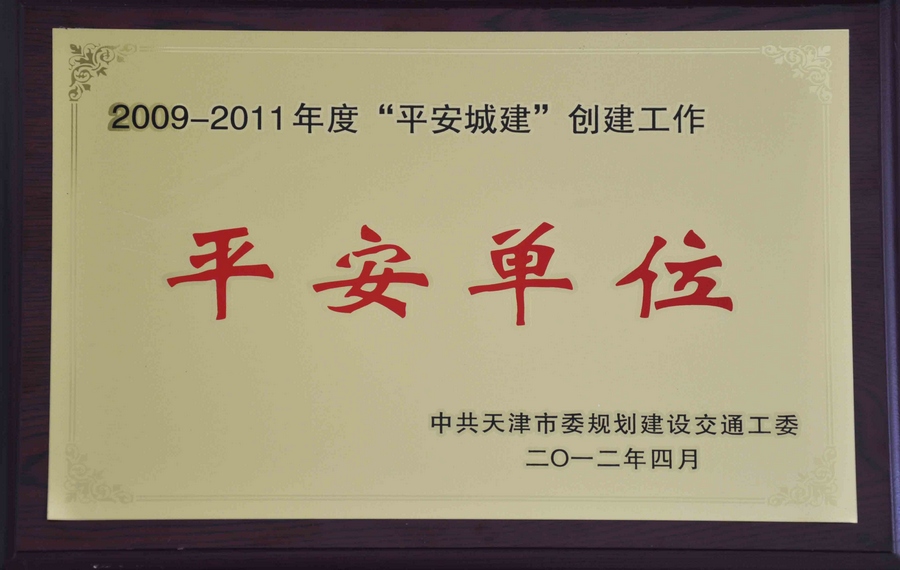 2009-2011年度“平安城建”创建工作
平安单位
中共天津市委规划建设交通工委
二〇一二年四月